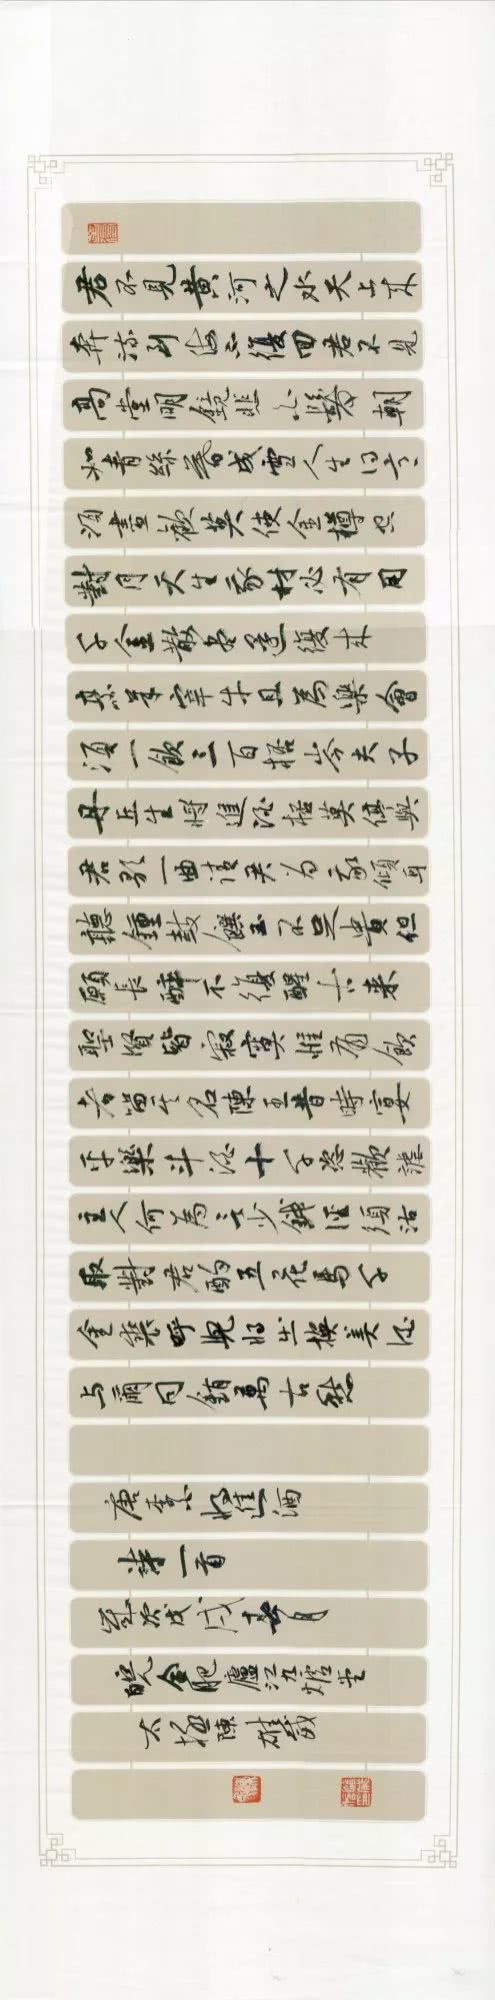 君不見黃河之水天上來
奔流到海不復回君不見
高堂明鏡悲白髮朝
如青絲暮成雪人生得意
須盡歡莫使金樽空
對月天生我材必有用
千金散盡還復來
烹羊宰牛且為樂會
須一飲三百杯岑夫子
丹丘生將進酒杯莫停與
君歌一曲請君為我傾耳
聽鐘鼓饌玉不足貴但
願長醉不復醒古來
聖賢皆寂寞惟有飲
者留其名陳王昔時宴
平樂斗酒十千恣歡謔
主人何為言少錢徑須沽
取對君酌五花馬千
金裘呼兒將出換美酒
与爾同銷萬古愁
唐李白將進酒
一首
歲次戊戌春月
皖合肥廬江
太極陳雄